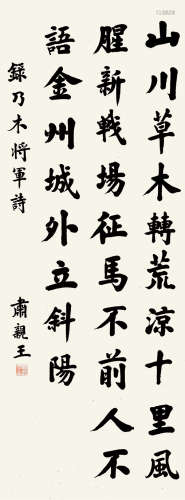 山川草木轉荒涼十里風
腥新戰場征馬不前人不
語金州城外立斜陽
錄乃木將軍詩
肅親王